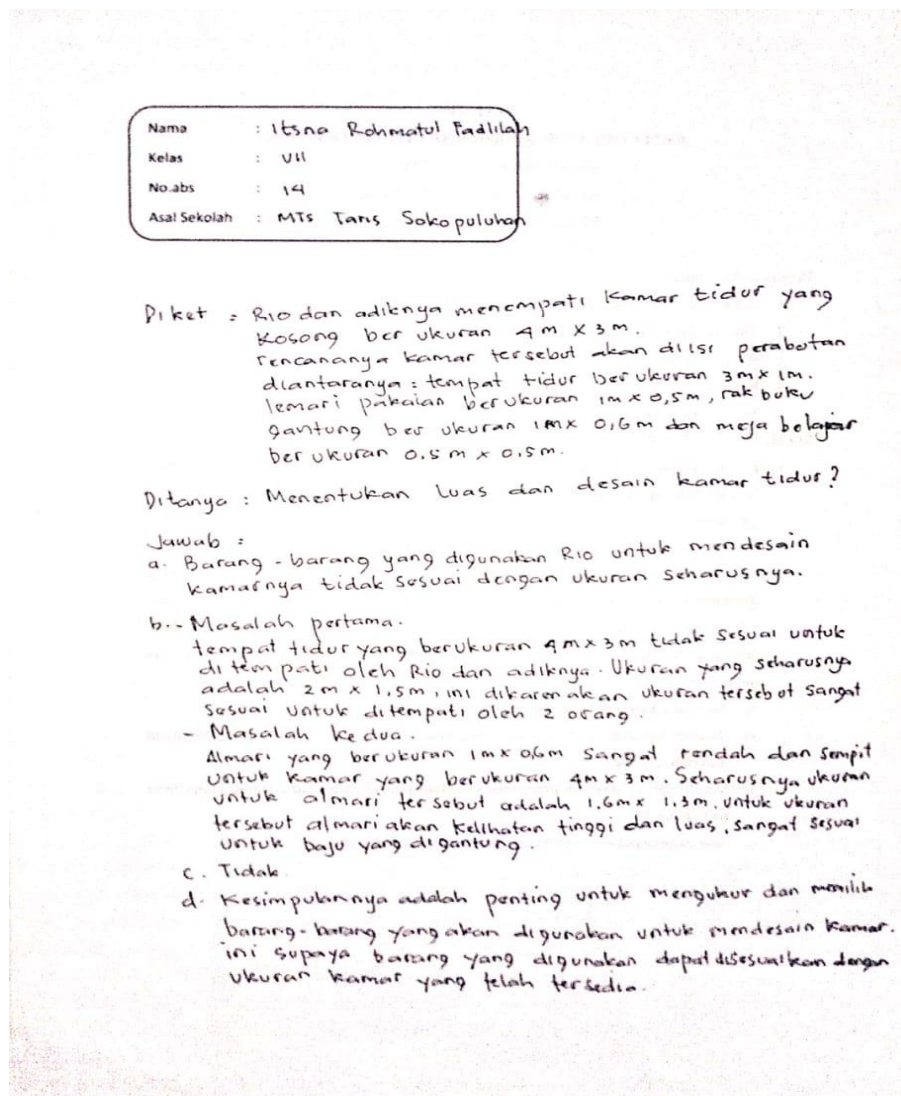 Nama : Itsna Rohmatul Fadlilah
Kelas : VII
No.abs : 14
Asal Sekolah : MTs Taris Sokopuluhan
Diket : Rio dan adiknya menempati kamar tidur yang
kosong ber ukuran 4m x 3m.
rencananya kamar tersebut akan diisi perabotan
diantaranya : tempat tidur berukuran 3m x 1m.
lemari pakaian berukuran 1m x 0,5m, rak buku
gantung ber ukuran 1m x 0,6m dan meja belajar
ber ukuran 0.5m x 0.5m.
Ditanya : Menentukan luas dan desain kamar tidur?
Jawab :
a. Barang - barang yang digunakan Rio untuk mendesain
kamarnya tidak sesuai dengan ukuran seharusnya.
b. - Masalah pertama.
tempat tidur yang berukuran 4m x 3m tidak sesuai untuk
di tempati oleh Rio dan adiknya. Ukuran yang seharusnya
adalah 2m x 1,5m, ini dikarenakan ukuran tersebut sangat
sesuai untuk ditempati oleh 2 orang.
- Masalah kedua.
Almari yang berukuran 1m x 0,6m sangat rendah dan sempit
untuk kamar yang berukuran 4m x 3m. Seharusnya ukuran
untuk almari tersebut adalah 1.6m x 1.3m, untuk ukuran
tersebut almari akan kelihatan tinggi dan luas, sangat sesuai
untuk baju yang digantung.
c. Tidak
d. Kesimpulannya adalah penting untuk mengukur dan memilih
barang-barang yang akan digunakan untuk mendesain kamar.
ini supaya barang yang digunakan dapat disesuaikan dengan
ukuran kamar yang telah tersedia.